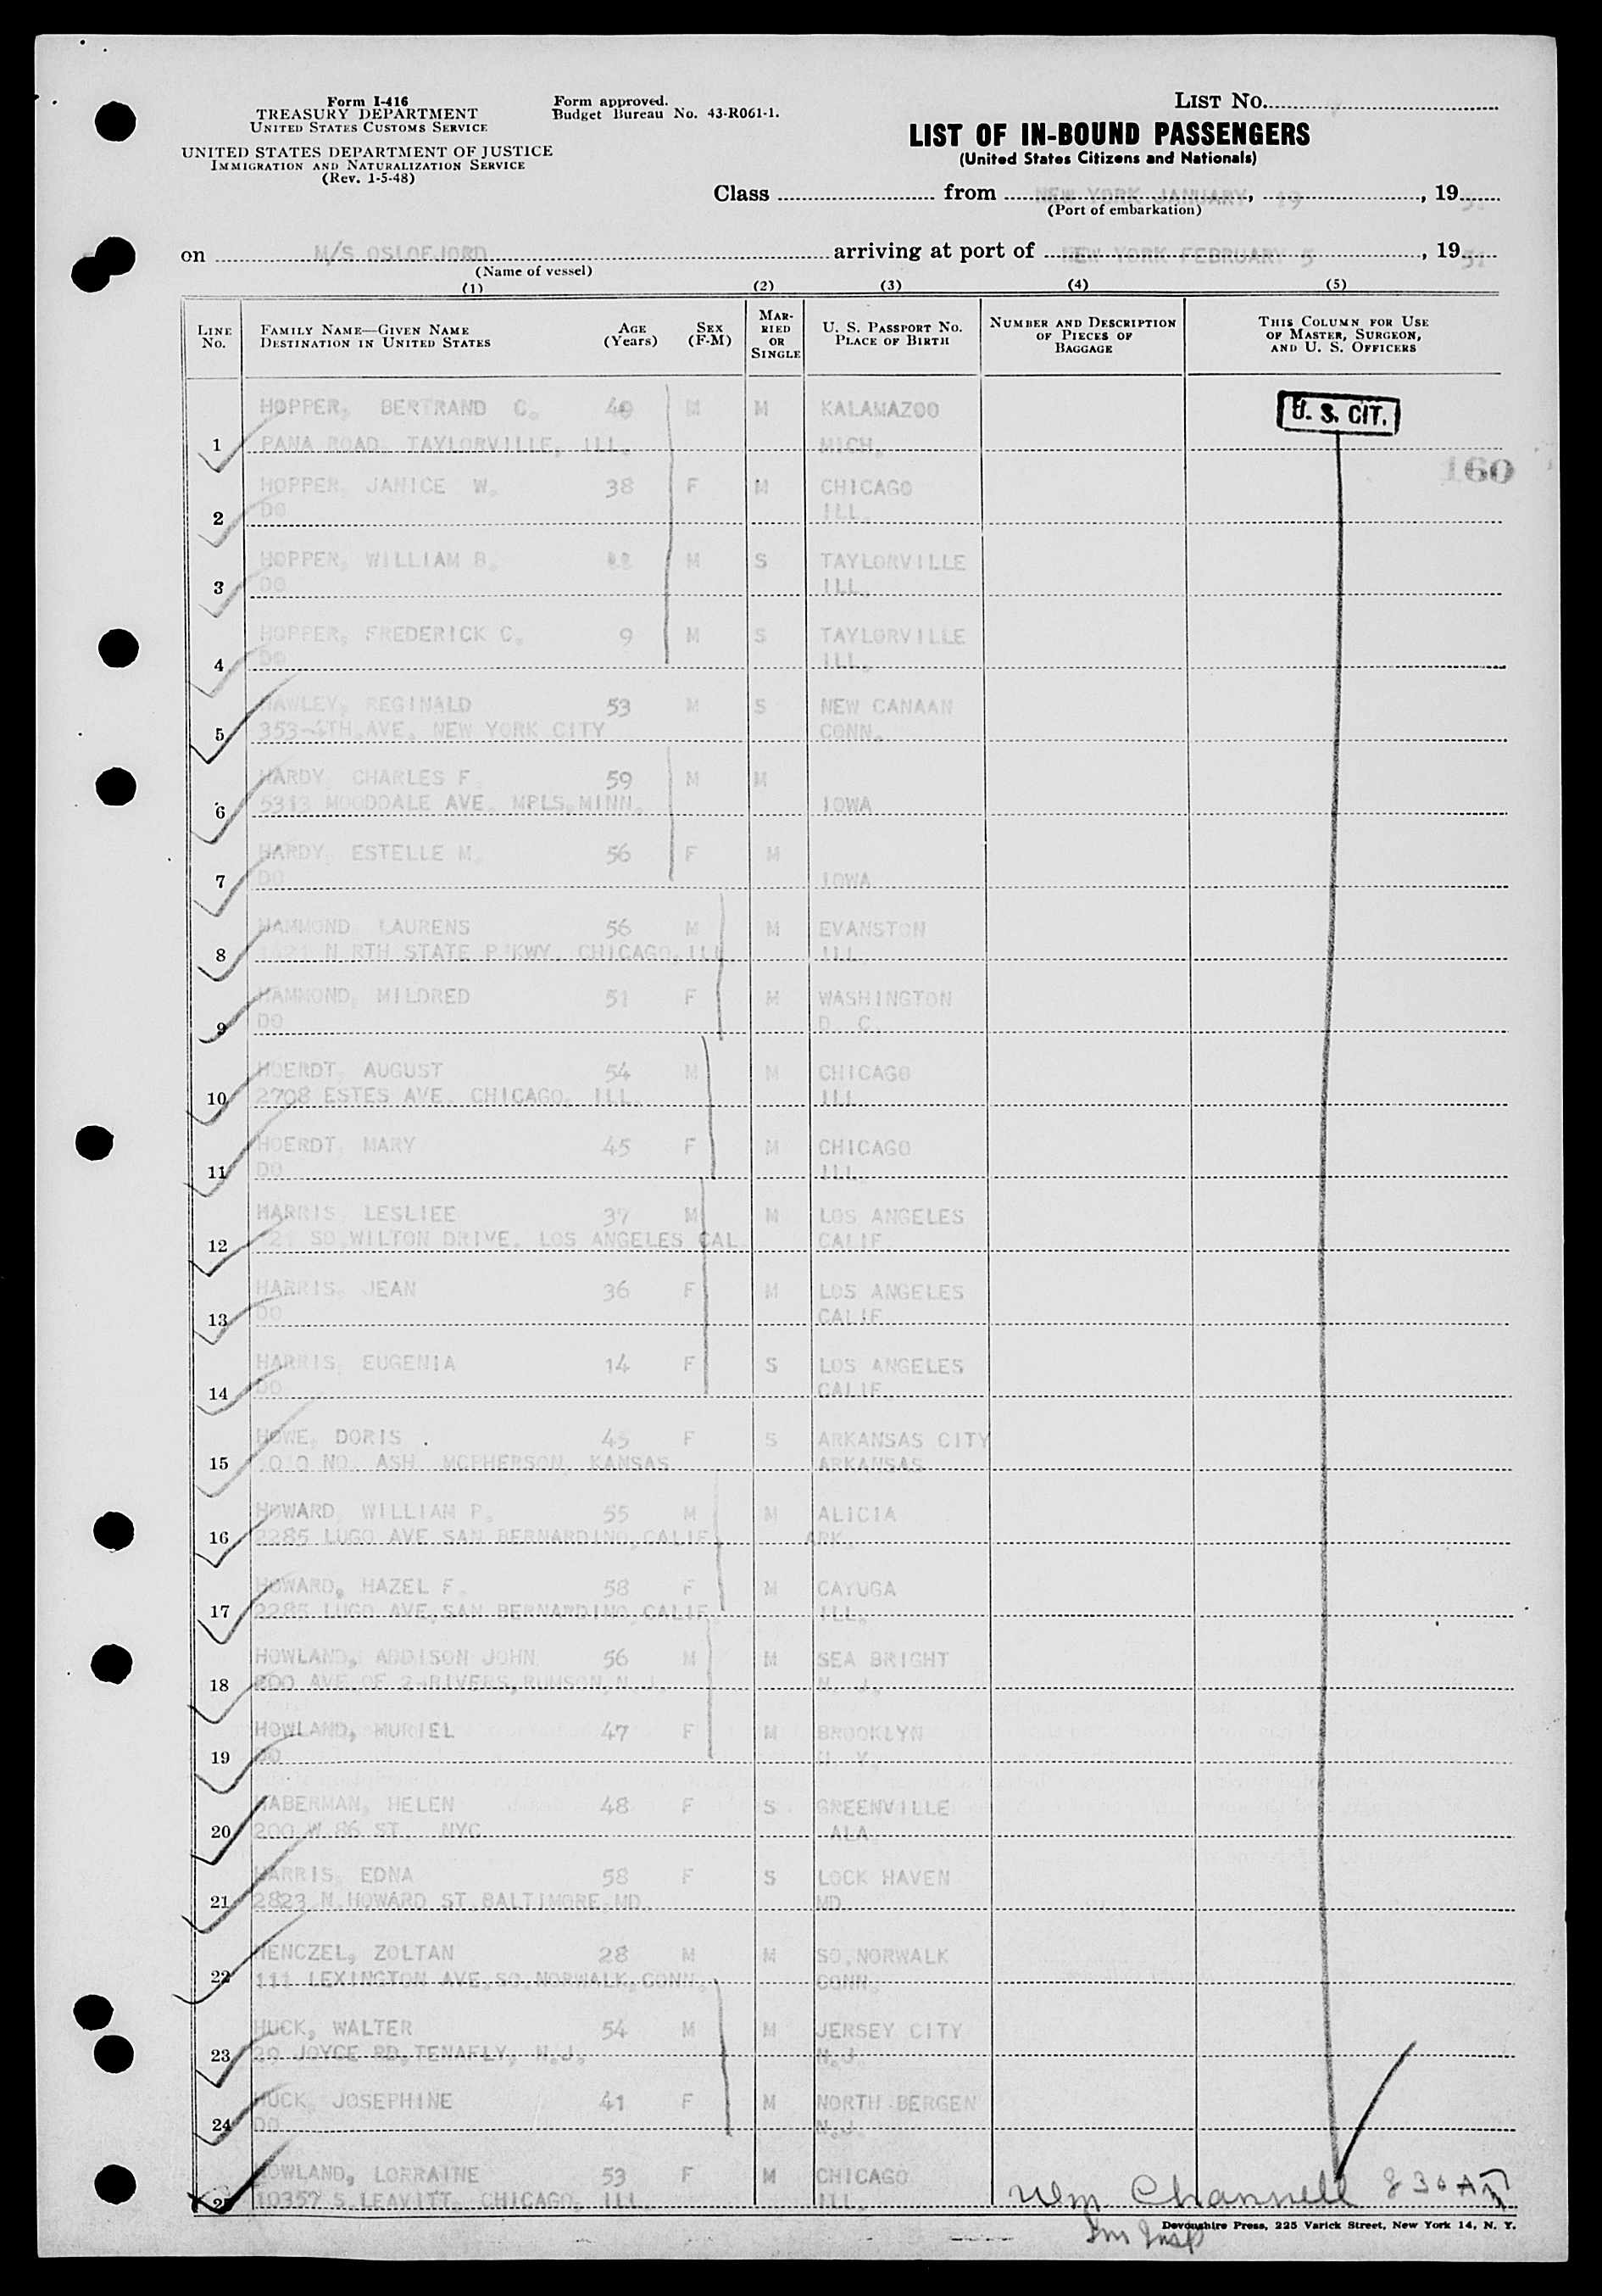 Form I-416
TREASURY DEPARTMENT
UNITED STATES CUSTOMS SERVICE
UNITED STATES DEPARTMENT OF JUSTICE
IMMIGRATION AND NATURALIZATION SERVICE
(Rev. 1-5-48)
Form approved.
Budget Bureau No. 43-R061-1.
LIST No.
LIST OF IN-BOUND PASSENGERS
(United States Citizens and Nationals)
Class from NEW YORK JANUARY, 19, 19
(Port of embarkation)
on M/S OSLOFJORD arriving at port of NEW YORK FEBRUARY 5, 1951
(Name of vessel)
(1) (2) (3) (4) (5)
LINE No. FAMILY NAME—GIVEN NAME DESTINATION IN UNITED STATES AGE (Years) SEX (F-M) MARRIED OR SINGLE U. S. PASSPORT No. PLACE OF BIRTH NUMBER AND DESCRIPTION OF PIECES OF BAGGAGE THIS COLUMN FOR USE OF MASTER, SURGEON, AND U. S. OFFICERS
HOPPER, BERTRAND C. 40 M M KALAMAZOO U. S. CIT.
1 PANA ROAD, TAYLORVILLE, ILL. MICH.
160
HOPPER, JANICE W. 38 F M CHICAGO
2 DO ILL.
HOPPER, WILLIAM B. M S TAYLORVILLE
3 DO ILL.
HOPPER, FREDERICK C. 9 M S TAYLORVILLE
4 DO ILL.
HAWLEY, REGINALD 53 M S NEW CANAAN
5 353-4TH.AVE. NEW YORK CITY CONN.
HARDY, CHARLES F. 59 M M
6 5313 MOODDALE AVE. MPLS.MINN. IOWA
HARDY, ESTELLE M. 56 F M
7 DO IOWA
HAMMOND, LAURENS 56 M M EVANSTON
8 N RTH STATE P KWY. CHICAGO.ILL ILL.
HAMMOND, MILDRED 51 F M WASHINGTON
9 DO D. C.
HOERDT, AUGUST 54 M M CHICAGO
10 2708 ESTES AVE. CHICAGO. ILL. ILL.
HOERDT, MARY 45 F M CHICAGO
11 DO ILL.
HARRIS, LESLIEE 37 M M LOS ANGELES
12 SO.WILTON DRIVE. LOS ANGELES CAL. CALIF
HARRIS, JEAN 36 F M LOS ANGELES
13 DO CALIF.
HARRIS, EUGENIA 14 F S LOS ANGELES
14 DO CALIF.
HOWE, DORIS 45 F S ARKANSAS CITY
15 NO. ASH MCPHERSON, KANSAS ARKANSAS
HOWARD, WILLIAM P. 55 M M ALICIA
16 2285 LUGO AVE SAN BERNARDINO,CALIF. ARK.
HOWARD, HAZEL F. 58 F M CAYUGA
17 2285 LUGO AVE,SAN BERNARDINO,CALIF. ILL.
HOWLAND, ADDISON JOHN 56 M M SEA BRIGHT
18 AVE.OF 2-RIVERS,RUMSON,N.J. N. J.
HOWLAND, MURIEL 47 F M BROOKLYN
19 DO N. Y.
HABERMAN, HELEN 48 F S GREENVILLE
20 200 W 86 ST. NYC ALA.
HARRIS, EDNA 58 F S LOCK HAVEN
21 2823 N.HOWARD ST.BALTIMORE,MD MD.
HENCZEL, ZOLTAN 28 M M SO.NORWALK
22 111 LEXINGTON AVE.SO.NORWALK,CONN. CONN.
HUCK, WALTER 54 M M JERSEY CITY
23 29 JOYCE RD,TENAFLY, N.J. N.J.
HUCK, JOSEPHINE 41 F M NORTH BERGEN
24 DO N.J.
HOWLAND, LORRAINE 53 F M CHICAGO
25 10357 S.LEAVITT. CHICAGO, ILL. ILL.
Wm Channell 830 AM
Imm Insp
Devonshire Press, 225 Varick Street, New York 14, N. Y.